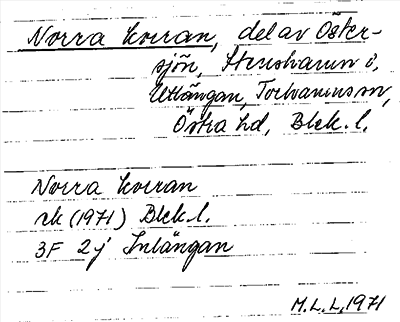 Norra korran, del av Öster-
sjön, Stenshamn i,
Utlängan, Torhamns sn,
Östra hd, Blek. l.
Norra korran
rk (1971) Blek. l.
3F 2j Inlängan
M. L. L, 1971